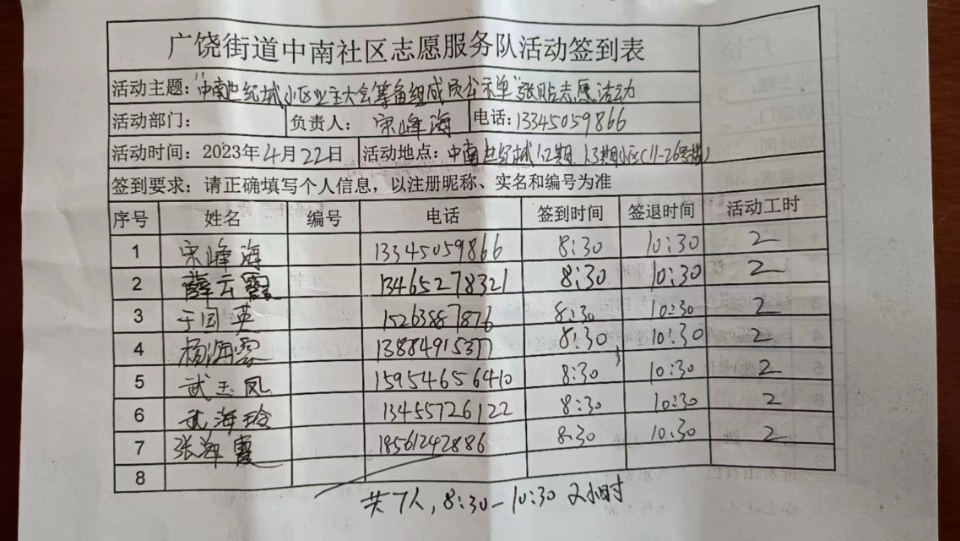 广饶街道中南社区志愿服务队活动签到表
活动主题：“中南世纪城小区业主大会筹备组成员公示单”张贴志愿活动
活动部门： 负责人：宋峰海 电话：13345059866
活动时间：2023年4月22日 活动地点：中南世纪城1、2期、3期小区(11-26号楼)
签到要求：请正确填写个人信息，以注册昵称、实名和编号为准
序号 姓名 编号 电话 签到时间 签退时间 活动工时
1 宋峰海 13345059866 8:30 10:30 2
2 薛云霞 13465278321 8:30 10:30 2
3 于国英 15263887876 8:30 10:30 2
4 杨海雲 13884915377 8:30 10:30 2
5 武玉凤 15954656410 8:30 10:30 2
6 武海玲 13455726122 8:30 10:30 2
7 张翠霞 18561242886 8:30 10:30 2
8
共7人，8:30-10:30 2小时